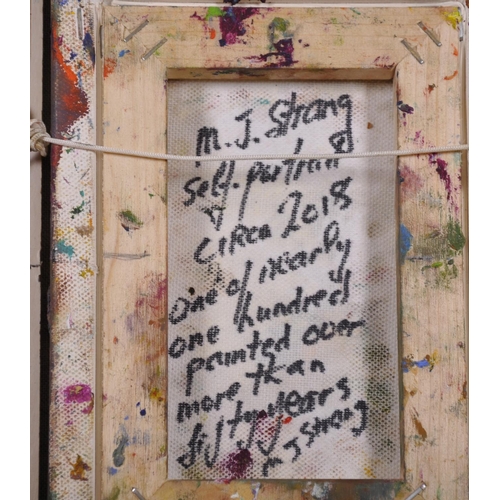 M.J. Strang
self-portrait
circa 2018
one of nearly
one hundred
painted over
more than
fifty years
M J Strang